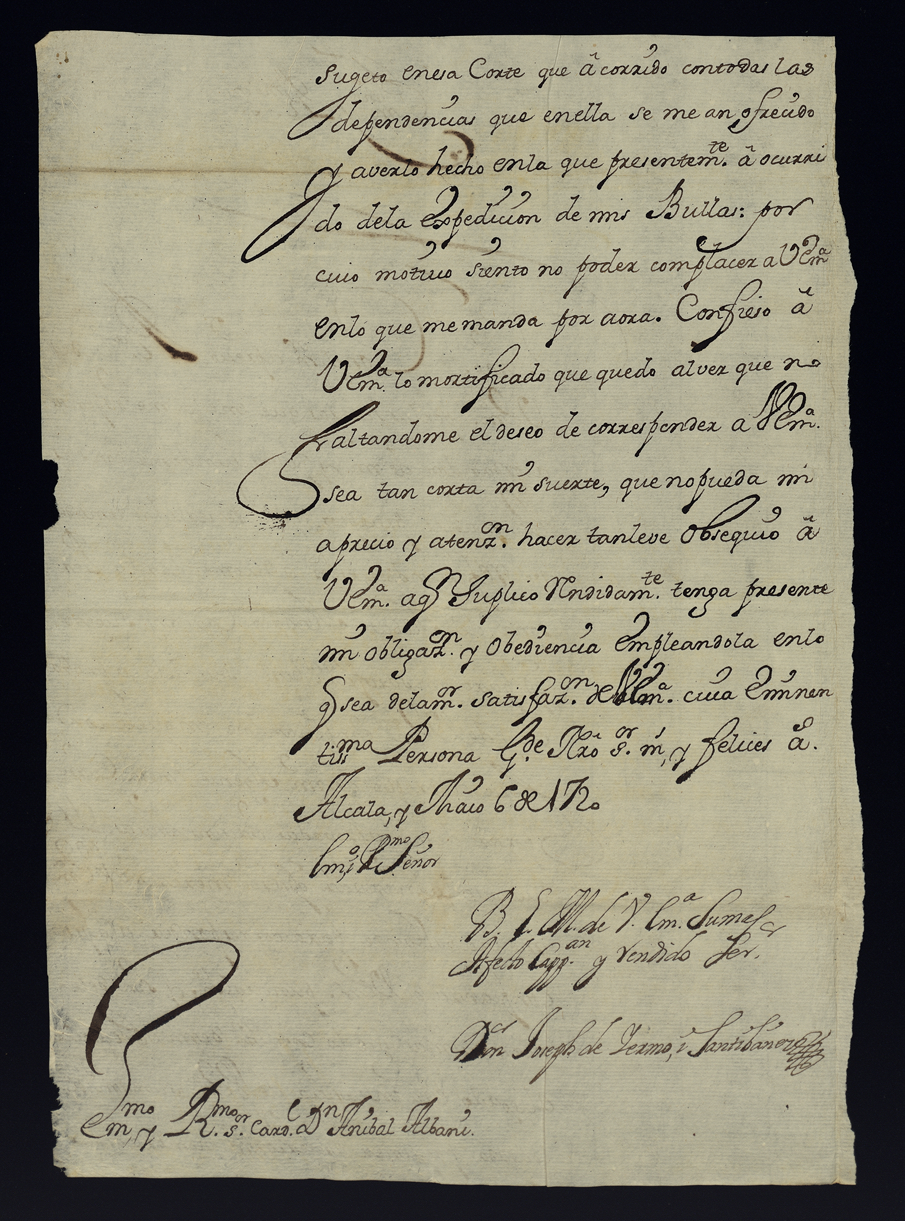 Sugeto enesa Corte que â corrido contodas las
dependencias que enella se me an ofrecido
y averlo hecho enla que presentemte. â ocurri
do dela expedicion de mis Bullas: por
cuio motiuo siento no poder complacer a VEma
enlo que me manda por aora. Confieso â
VEma. lo mortificado que quedo al ver que no
faltandome el deseo de corresponder a VEma.
sea tan corta mi suerte, que no pueda mi
aprecio y atenzon. hacer tanleve obsequio â
VEma. aqn suplico Rendidamte. tenga presente
mi obligazon. y obediencia Empleandola enlo
q sea delamor. satisfazon. de VEma. cuia Eminen
tissma Persona Gde. Nro sor. ms, y felices as.
Alcala, y Maio 6 de 1720
Emo, i Rmo Señor
B. L. M. de V. Ema. Su mas
Afecto Cappan. y rendido Ser.or
Dn Joseph de Yermo, i Santibañez
Emmo, y Rmo. sor. Cardl. Dn Anibal Albani.